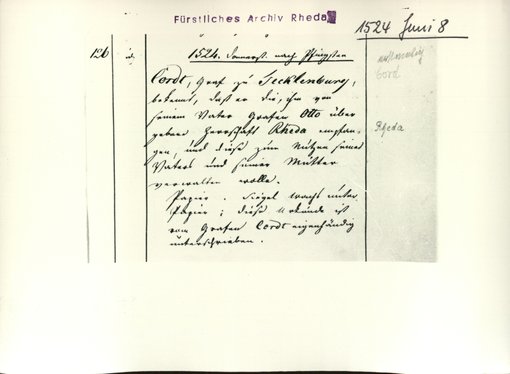 Fürstliches Archiv Rheda
1524 Juni 8
126
1524. Donnerst. nach Pfingsten
Cordt, Graf zu Tecklenburg,
bekennt, daß er die, ihm von
seinem Vater Grafen Otto über
gebene Herrschaft Rheda empfan-
gen, und diese zum Nutzen seines
Vaters und seiner Mutter
verwalten wolle.
Papier. Siegel wachs unter
Papier; diese Urkunde ist
vom Grafen Cordt eigenhändig
unterschrieben.
Cord
Rheda